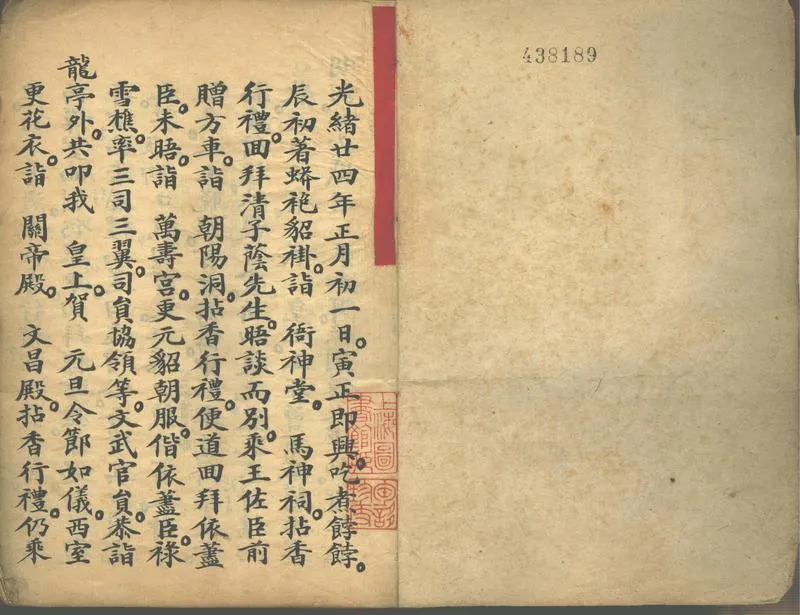 438189
光緒廿四年正月初一日。寅正即興。吃煮餑餑。
辰初著蟒袍貂褂。詣 衙神堂。 馬神祠拈香
行禮囬拜清子蔭先生。晤談而別。乘王佐臣前
贈方車。詣 朝陽洞。拈香行禮。便道囬拜依藎
臣。未晤。詣 萬壽宮。更元貂朝服。偕依藎臣。祿
雪樵。率三司三翼。司員協領等。文武官員。恭詣
龍亭外。共叩我 皇上。賀 元旦令節如儀。西室
更花衣。詣 關帝殿。 文昌殿。拈香行禮。仍乘
上海圖